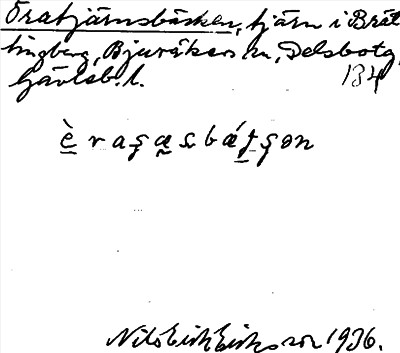 Öratjärnsbäcken, tjärn i Brät
tingberg, Bjuråkers sn, Delsbotg,
Gävleb. l.
134
è r a ș æ s b ǽ t ș ə n
Nils Erik Eriksson 1936.